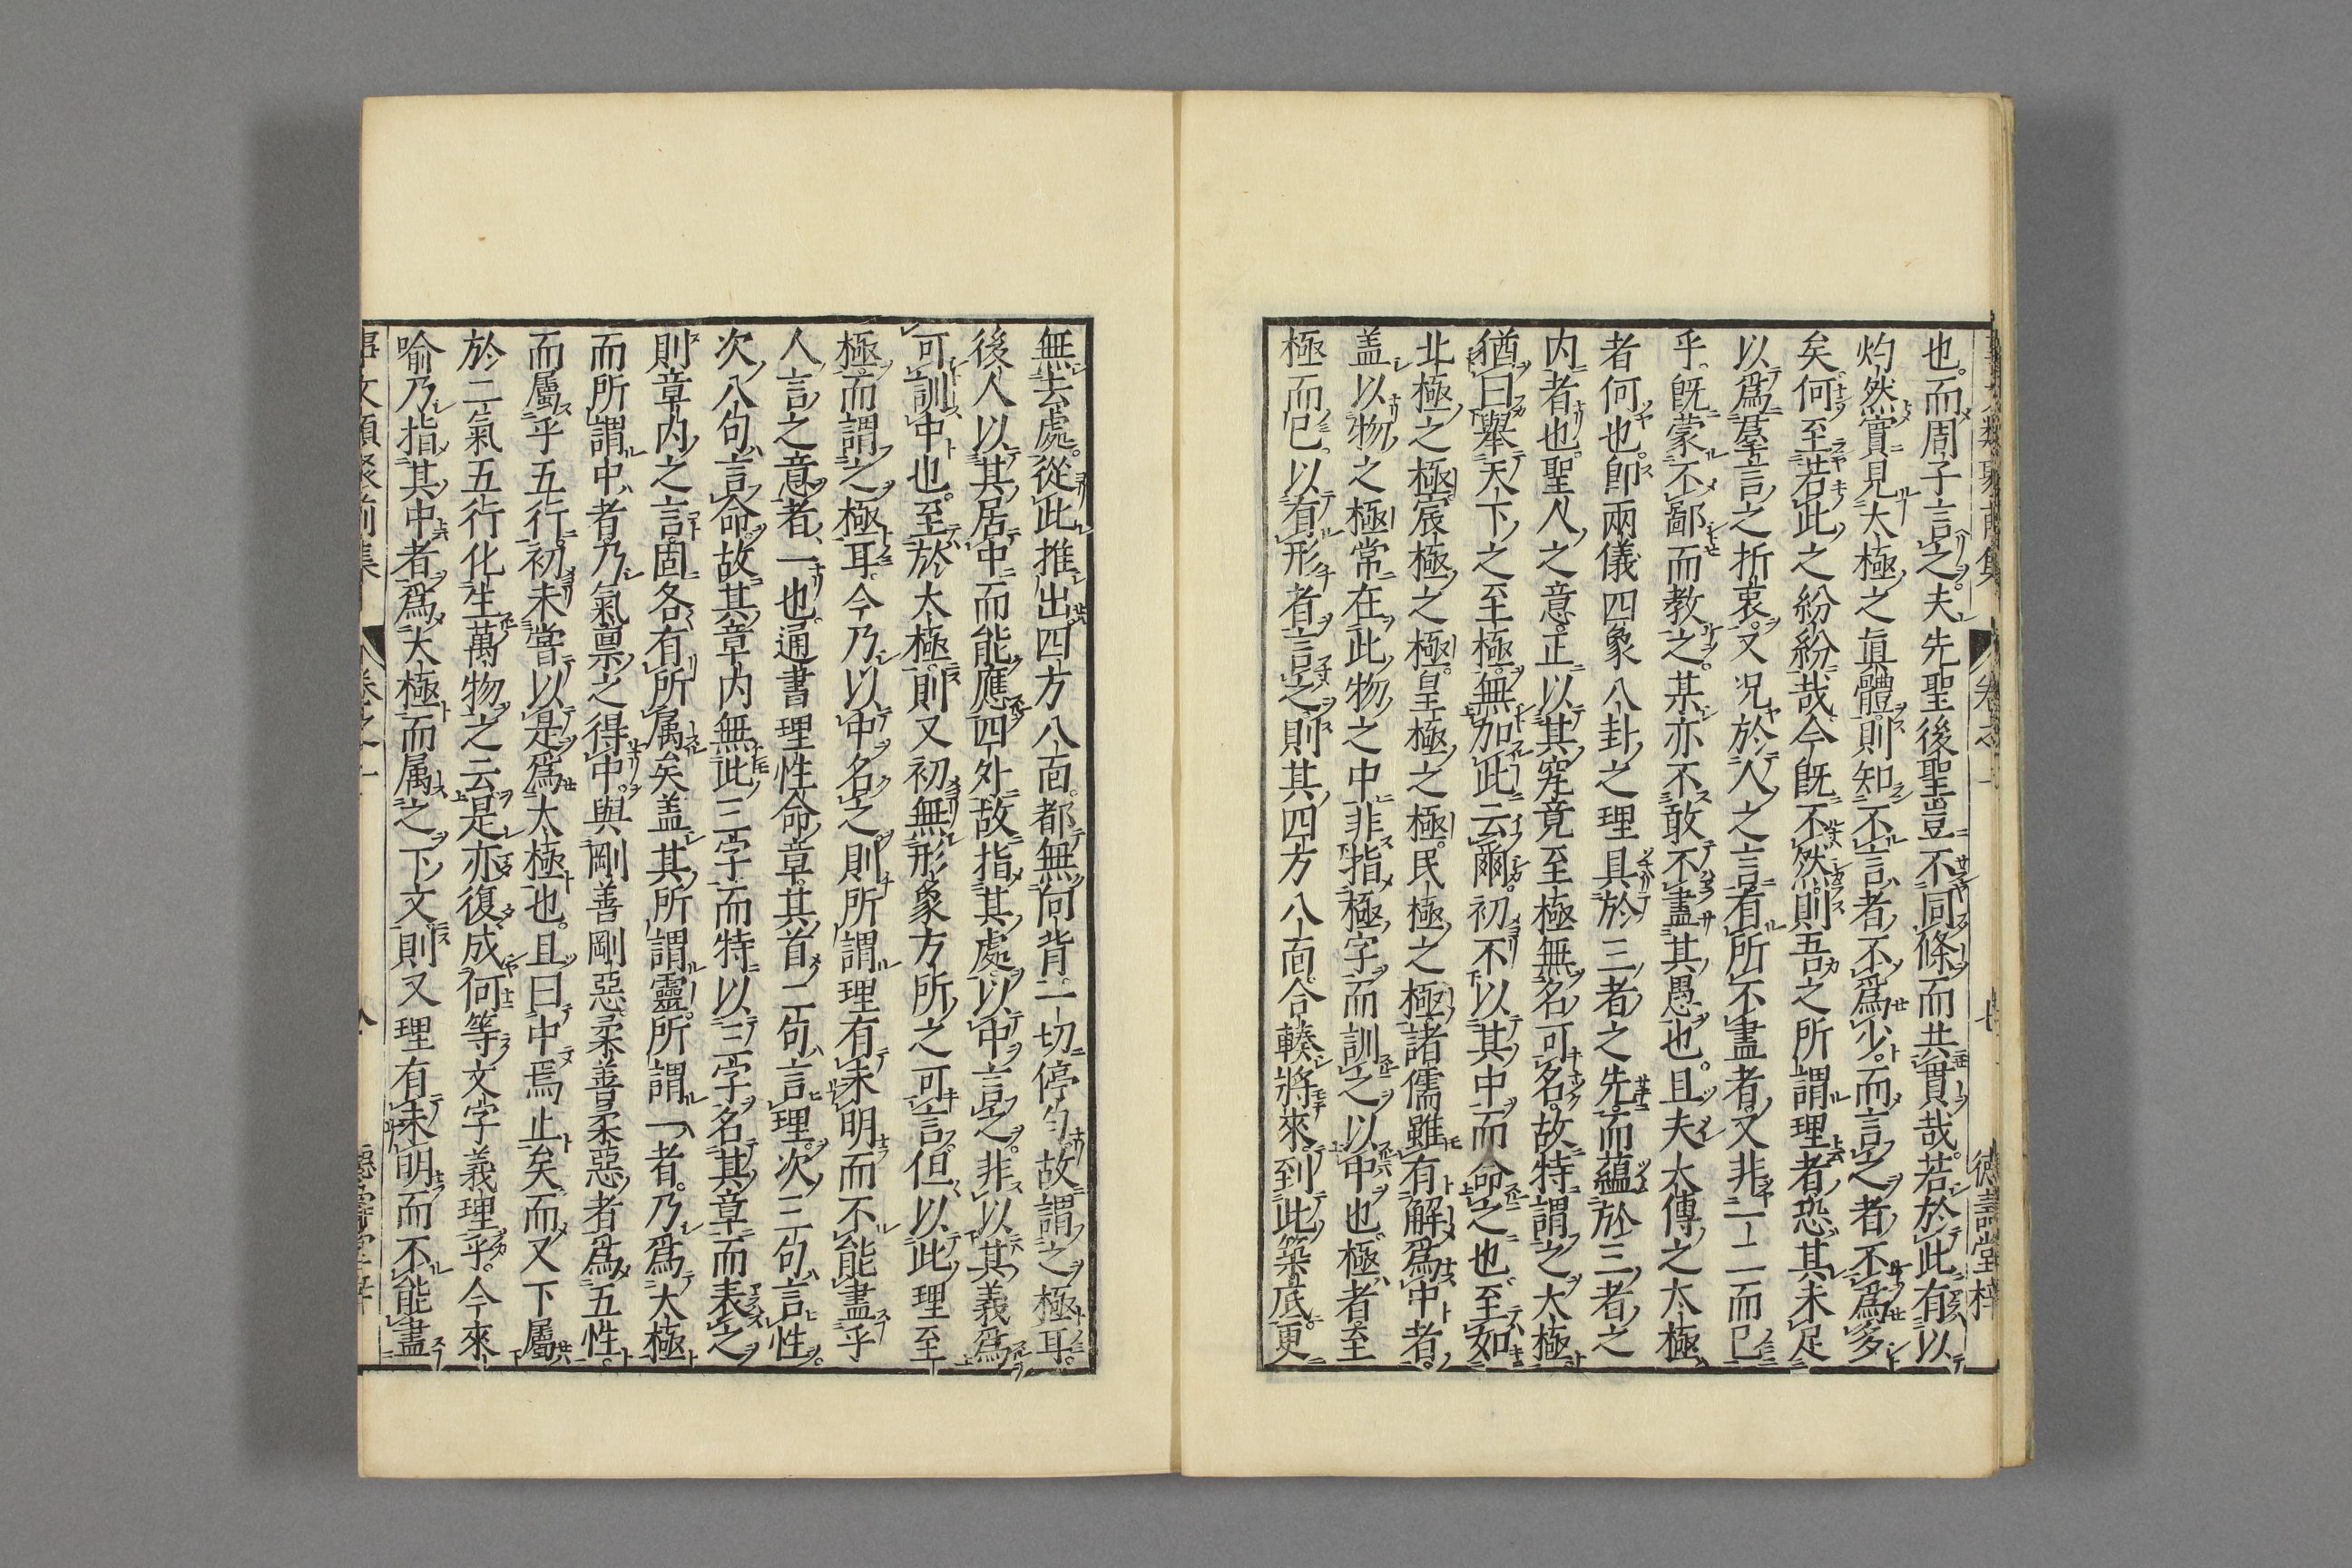 也而周子言之夫先聖後聖豈不同條而共貫哉若於此有以
灼然實見太極之眞體則知不言者不爲少而言之者不爲多
矣何至若此之紛紛哉今旣不然則吾之所謂理者恐其未足
以爲羣言之折衷又况於人之言有所不盡者又非一二而已
乎旣蒙不鄙而教之某亦不敢不盡其愚也且夫太傳之太極
者何也卽兩儀四象八卦之理具於三者之先而蘊於三者之
内者也聖人之意正以其究竟至極無名可名故特謂之太極
猶曰舉天下之至極無加此云爾初不以其中而命之也至如
北極之極宸極之極皇極之極民極之極諸儒雖有解爲中者
盖以物之極常在此物之中非指極字而訓之以中也極者至
極而已以有形者言之則其四方八面合輳將來到此築底更
無去處從此推出四方八面都無向背一切停匀故謂之極耳
後人以其居中而能應四外故指其處以中言之非以其義爲
可訓中也至於太極則又初無形象方所之可言但以此理至
極而謂之極耳今乃以中名之則所謂理有未明而不能盡乎
人言之意者一也通書理性命章其首二句言理次三句言性
次八句言命故其章内無此三字而特以三字名其章而表之
則章内之言固各有所属矣盖其所謂靈所謂一者乃爲太極
而所謂中者乃氣禀之得中與剛善剛惡柔善柔惡者爲五性
而屬乎五行初未嘗以是爲太極也且曰中焉止矣而又下屬
於二氣五行化生萬物之云是亦復成何等文字義理乎今來
喻乃指其中者爲太極而属之下文則又理有未明而不能盡